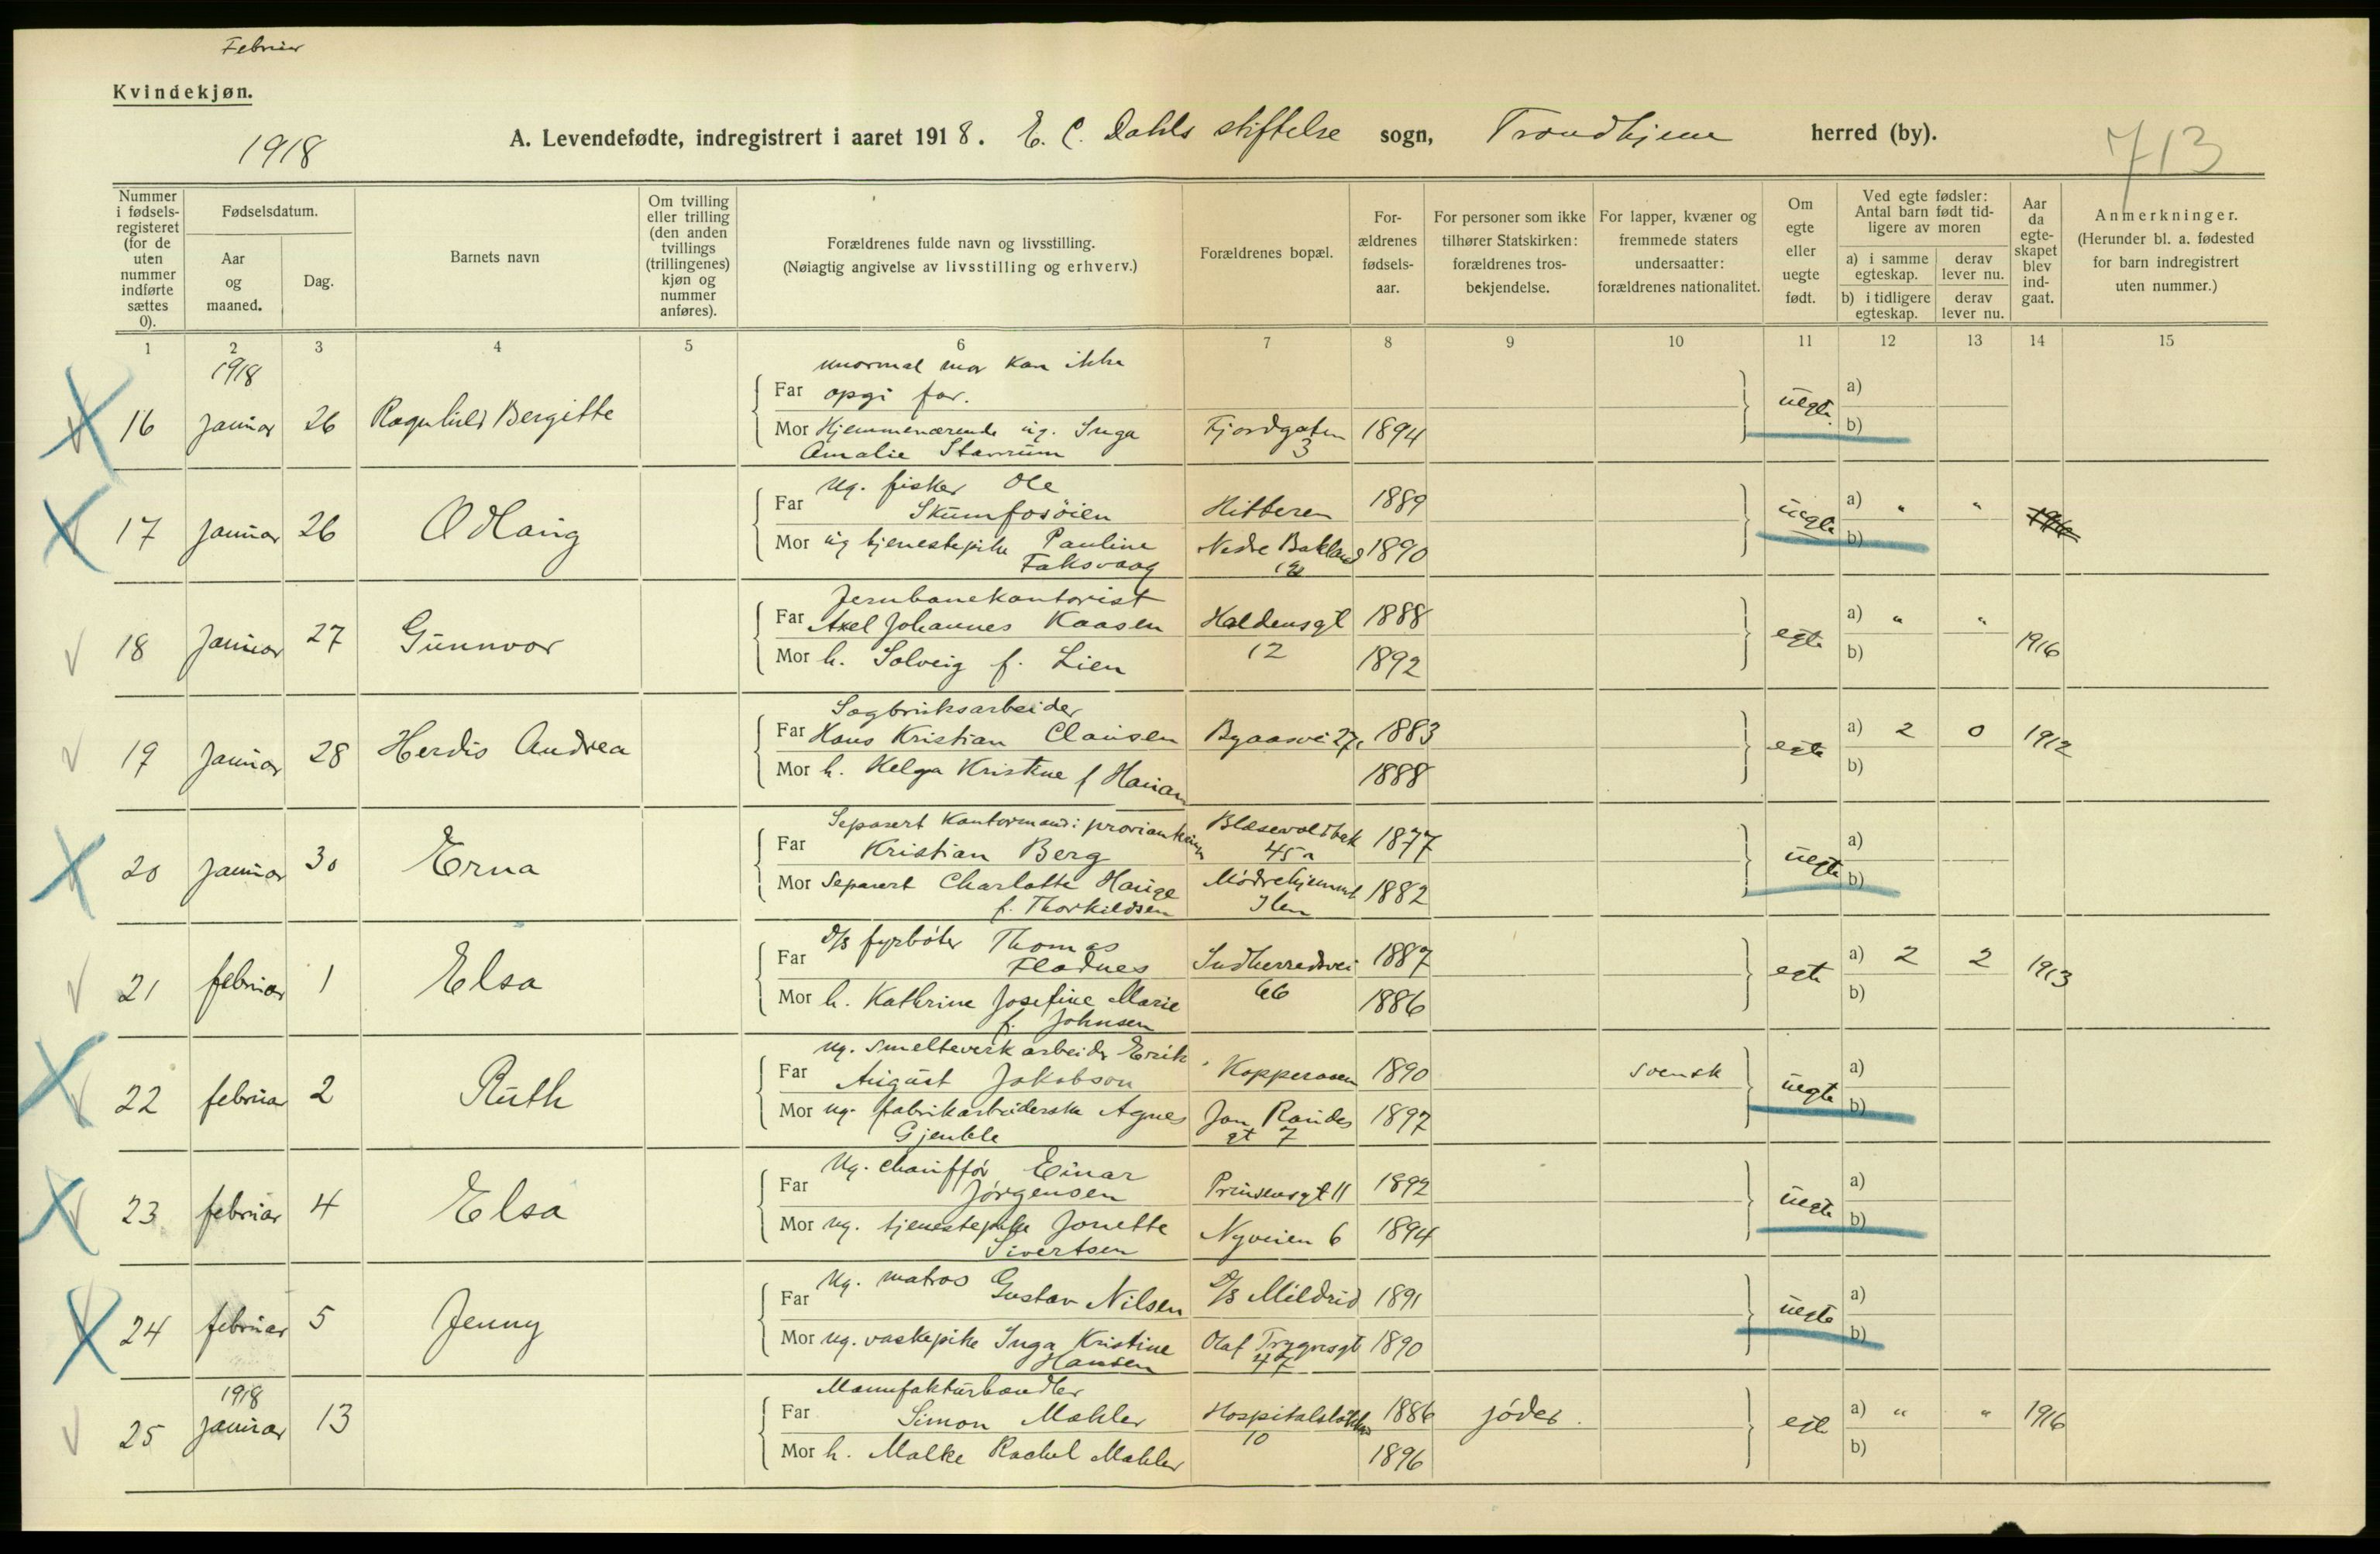 Februar
Kvindekjøn.
1918
A. Levendefødte, indregistrert i aaret 1918. E. C. Dahls stiftelse sogn, Trondhjem herred (by).
713
Nummer i fødsels-registeret (for de uten nummer indførte sættes 0).
Fødselsdatum.
Aar og maaned.
Dag.
Barnets navn
Om tvilling eller trilling (den anden tvillings (trillingenes) kjøn og nummer anføres).
Forældrenes fulde navn og livsstilling.
(Nøiagtig angivelse av livsstilling og erhverv.)
Forældrenes bopæl.
For-ældrenes fødsels-aar.
For personer som ikke tilhører Statskirken: forældrenes tros-bekjendelse.
For lapper, kvæner og fremmede staters undersaatter: forældrenes nationalitet.
Om egte eller uegte født.
Ved egte fødsler: Antal barn født tid-ligere av moren
a) i samme egteskap.
derav lever nu.
b) i tidligere egteskap.
derav lever nu.
Aar da egte-skapet blev ind-gaat.
Anmerkninger.
(Herunder bl. a. fødested for barn indregistrert uten nummer.)
1 2 3 4 5 6 7 8 9 10 11 12 13 14 15
1918
unormal mor kan ikke
Far opgi far.
16 januar 26 Ragnhild Bergitte
uegte a) b)
Mor Hjemmeværende ug. Inga Fjordgaten 1894
Amalie Stavrum 3
ug. fisker Ole
Far Skumfosöien Hitteren 1889
17 januar 26 Odlaug
uegte a) " " b)
Mor ug tjenestepike Pauline Nedre Bakland 1890
Faksvaag
Jernbanekontorist
Far Axel Johannes Kaasen Haldensgt 1888
18 januar 27 Gunnvor
egte a) " " b) 1916
Mor h. Solveig f. Lien 12 1892
Sagbruksarbeider
Far Hans Kristian Clausen Byaasvei 27 1883
19 januar 28 Herdis Andrea
egte a) 2 0 b) 1912
Mor h. Helga Kristine f 1888
Separert Kontormand i
Far Kristian Berg 45a 1877
20 januar 30 Erna
uegte a) b)
Mor Separert Charlotte Hauge Mødrehjemmet 1882
f. Thorkildsen Ilen
D/S fyrbøter Thomas
Far Fladnes Indherredsvei 1887
21 februar 1 Elsa
egte a) 2 2 b) 1913
Mor h. Kathrine Josefine Marie 66 1886
f. Johnsen
ug. smelteverkarbeider Erik
Far August Jakobson Kopperaaen 1890 svensk
22 februar 2 Ruth
uegte a) b)
Mor ug. fabrikarbeiderske Agnes 1897
gt 7
Ug. chauffør Einar
Far Jörgensen Prinsensgt 11 1892
23 februar 4 Elsa
uegte a) b)
Mor ug. tjenestepike Jonette Nyveien 6 1894
Sivertsen
Ug. matros
Far Gustav Nilsen D/S Mildrid 1891
24 februar 5 Jenny
uegte a) b)
Mor ug. vaskepike Inga Kristine Olaf Trygvesgt 1890
Hansen 47
1918
Manufakturhandler
Far Simon Mahler 1886 jöder.
25 januar 13
egte a) " " b) 1916
10
Mor h. Malke Rachel Mahler 1896